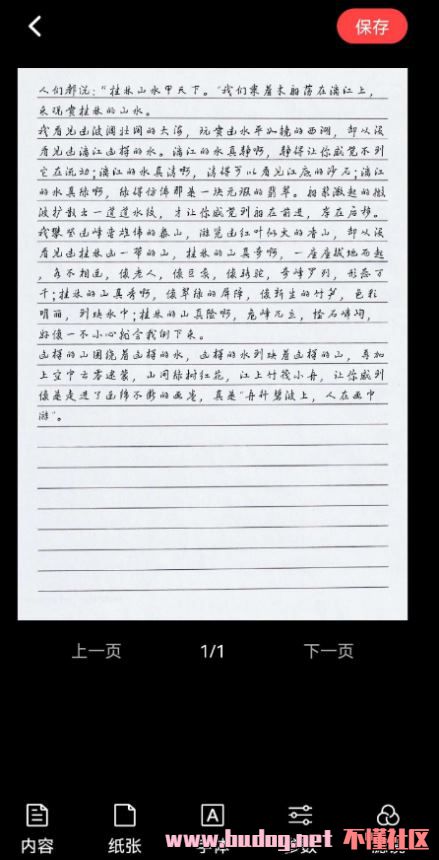 保存
人们都说："桂林山水甲天下。"我们乘着木船荡在漓江上，
来观赏桂林的山水。
我看见过波澜壮阔的大海，玩赏过水平如镜的西湖，却从没
看见过漓江这样的水。漓江的水真静啊，静得让你感觉不到
它在流动；漓江的水真清啊，清得可以看见江底的沙石；漓江
的水真绿啊，绿得仿佛那是一块无瑕的翡翠。船桨激起的微
波扩散出一道道水纹，才让你感觉到船在前进，岸在后移。
我攀登过峰峦雄伟的泰山，游览过红叶似火的香山，却从没
看见过桂林这一带的山，桂林的山真奇啊，一座座拔地而起
，各不相连，像老人，像巨象，像骆驼，奇峰罗列，形态万
千；桂林的山真秀啊，像翠绿的屏障，像新生的竹笋，色彩
明丽，倒映水中；桂林的山真险啊，危峰兀立，怪石嶙峋，
好像一不小心就会栽倒下来。
这样的山围绕着这样的水，这样的水倒映着这样的山，再加
上空中云雾迷蒙，山间绿树红花，江上竹筏小舟，让你感到
像是走进了连绵不断的画卷，真是"舟行碧波上，人在画中
游"。
上一页 1/1 下一页
内容 纸张 字体 参数 滤镜
www.budog.net 不懂社区